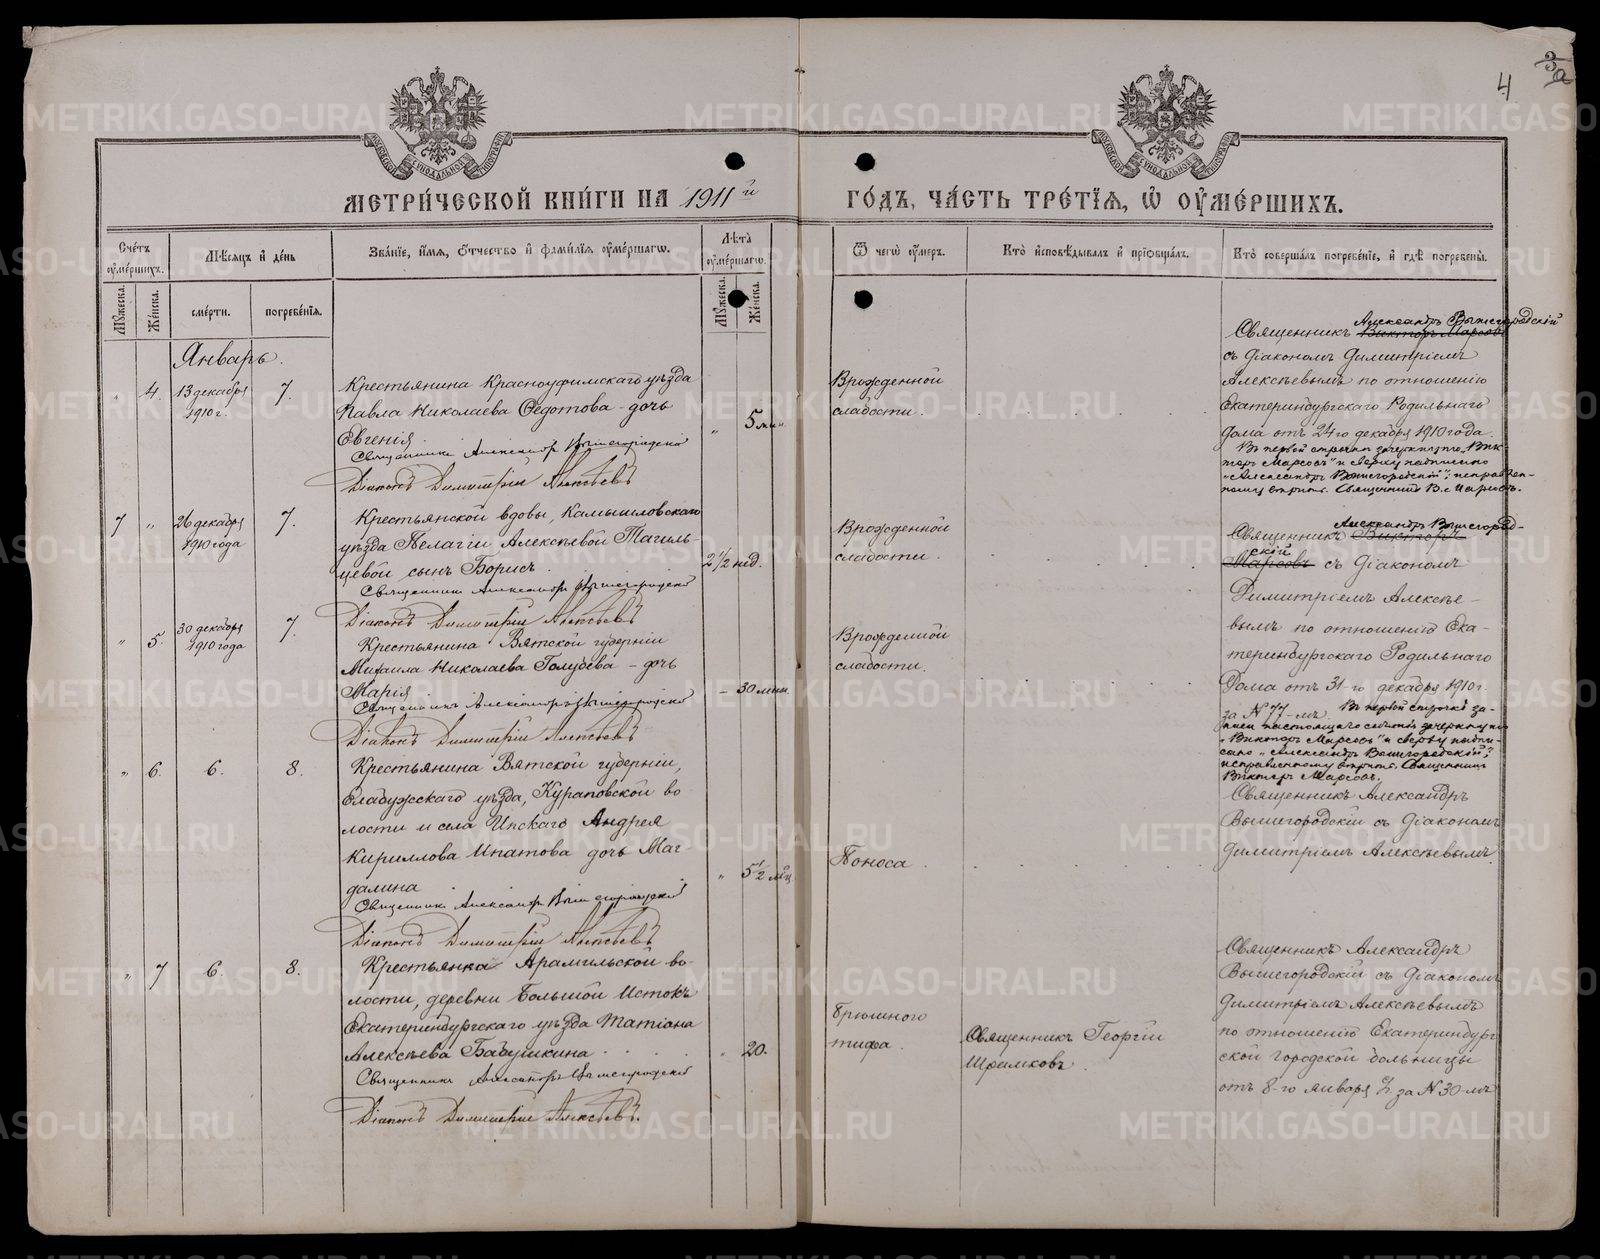 4
3/а
МОСКОВСКОЙ СѴНОДАЛЬНОЙ ТИПОГРАФІИ
МОСКОВСКОЙ СѴНОДАЛЬНОЙ ТИПОГРАФІИ
МЕТРИ́ЧЕСКОЙ КНИ́ГИ НА 1911й ГО́ДЪ, ЧА́СТЬ ТРЕ́ТІѦ, Ѽ ОУМЕ́РШИХЪ.
Сче́тъ оуме́ршихъ.
Мѣ́сяцъ и де́нь
Зва́ніе, и́мя, о́тчество и фами́лія оуме́ршагѡ.
Лѣ́та оуме́ршагѡ.
Ѿ чегѡ̀ оу́меръ.
Кто̀ исповѣ́дывалъ и пріѡбща́лъ.
Кто̀ соверша́лъ погребе́ніе, и гдѣ̀ погребены̀.
Мꙋ́жеска.
Же́нска.
сме́рти.
погребе́нія.
Мꙋ́жеска.
Же́нска.
Январь.
„ 4. 13 декабря 1910 г. 7.
Крестьянина Красноуфимскаго уѣзда
Павла Николаева Ѳедотова – дочь
Евгенія.
„ 5 мин.
Священникъ Александръ Вышегородскій
Діаконъ Димитрій Алексѣевъ
Врожденной
слабости.
Александръ Вышегородскій
Священникъ Викторъ Марсовъ
съ діакономъ Димитріемъ
Алексѣевымъ по отношенію
Екатеринбургскаго Родильнаго
дома отъ 24го декабря 1910 года.
Въ первой строчкѣ зачеркнуто „Вик-
торъ Марсовъ" и сверху надписано
„Александръ Вышегородскій"; исправлен-
ному вѣрить. Священникъ В. Марсовъ.
7 „ 26 декабря 1910 года 7.
Крестьянской вдовы, Камышловскаго
уѣзда Пелагіи Алексѣевой Тагиль-
цевой сынъ Борисъ.
2 1/2 нед.
Священникъ Александръ Вышегородскій
Діаконъ Димитрій Алексѣевъ
Врожденной
слабости.
Александръ Вышегород-
Священникъ Викторъ
скій
Марсовъ съ діакономъ
Димитріемъ Алексѣе-
вымъ по отношенію Ека-
теринбургскаго Родильнаго
Дома отъ 31-го декабря 1910 г.
за N 77-мъ. Въ первой строчкѣ за-
писи настоящаго счета зачеркнуто
„Викторъ Марсовъ" и сверху надпи-
сано „Александръ Вышегородскій";
исправленному вѣрить. Священникъ
Викторъ Марсовъ.
„ 5. 30 декабря 1910 года 7.
Крестьянина Вятской губерніи
Михаила Николаева Голубева – дочь
Марія
– 30 мин.
Священникъ Александръ Вышегородскій
Діаконъ Димитрій Алексѣевъ
Врожденной
слабости.
„ 6. 6. 8.
Крестьянина Вятской губерніи,
Елабужскаго уѣзда, Кураковской во-
лости и села Инскаго Андрея
Кириллова Ипатова дочь Маг-
далина
„ 5 1/2 мѣц.
Священникъ Александръ Вышегородскій
Діаконъ Димитрій Алексѣевъ
Поноса.
Священникъ Александръ
Вышегородскій съ діакономъ
Димитріемъ Алексѣевымъ.
„ 7 6. 8.
Крестьянка Арамильской во-
лости, деревни Большой Истокъ
Екатеринбургскаго уѣзда Татіана
Алексѣева Бабушкина
„ 20.
Священникъ Александръ Вышегородскій
Діаконъ Димитрій Алексѣевъ.
Брюшного
тифа.
Священникъ Георгій
Шрамковъ.
Священникъ Александръ
Вышегородскій съ діакономъ
Димитріемъ Алексѣевымъ
по отношенію Екатеринбург-
ской городской больницы
отъ 8-го января с/г за N 30-мъ
METRIKI.GASO-URAL.RU